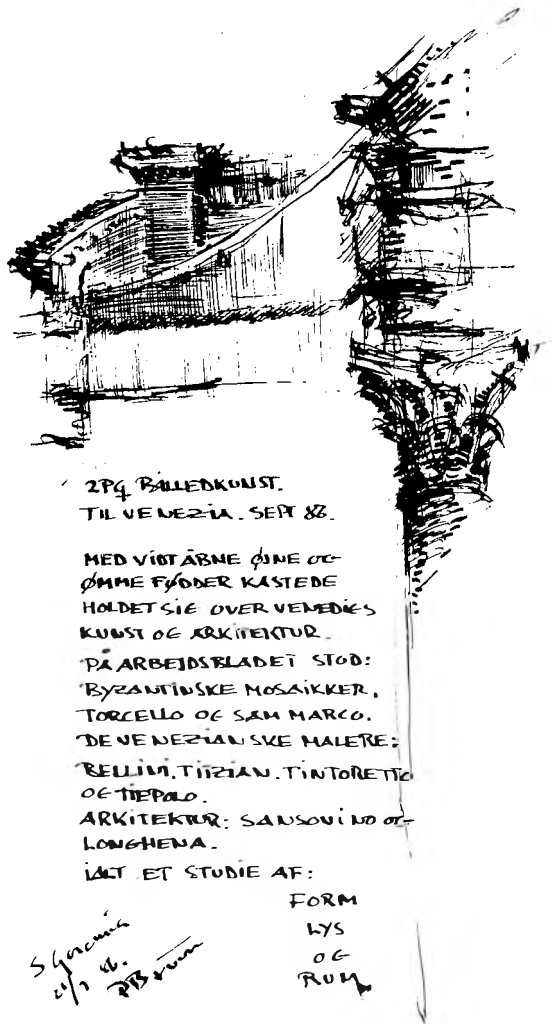 2PG BILLEDKUNST.
TIL VENEZIA. SEPT 86.
MED VIDT ÅBNE ØJNE OG
ØMME FØDDER KASTEDE
HOLDET SIG OVER VENEDIGS
KUNST OG ARKITEKTUR.
PÅ ARBEJDSBLADET STOD:
BYZANTINSKE MOSAIKKER.
TORCELLO OG SAN MARCO.
DE VENEZIANSKE MALERE:
BELLINI. TIZIAN. TINTORETTO
OG TIEPOLO.
ARKITEKTUR: SANSOVINO OG
LONGHENA.
IALT ET STUDIE AF:
FORM
LYS
OG
RUM